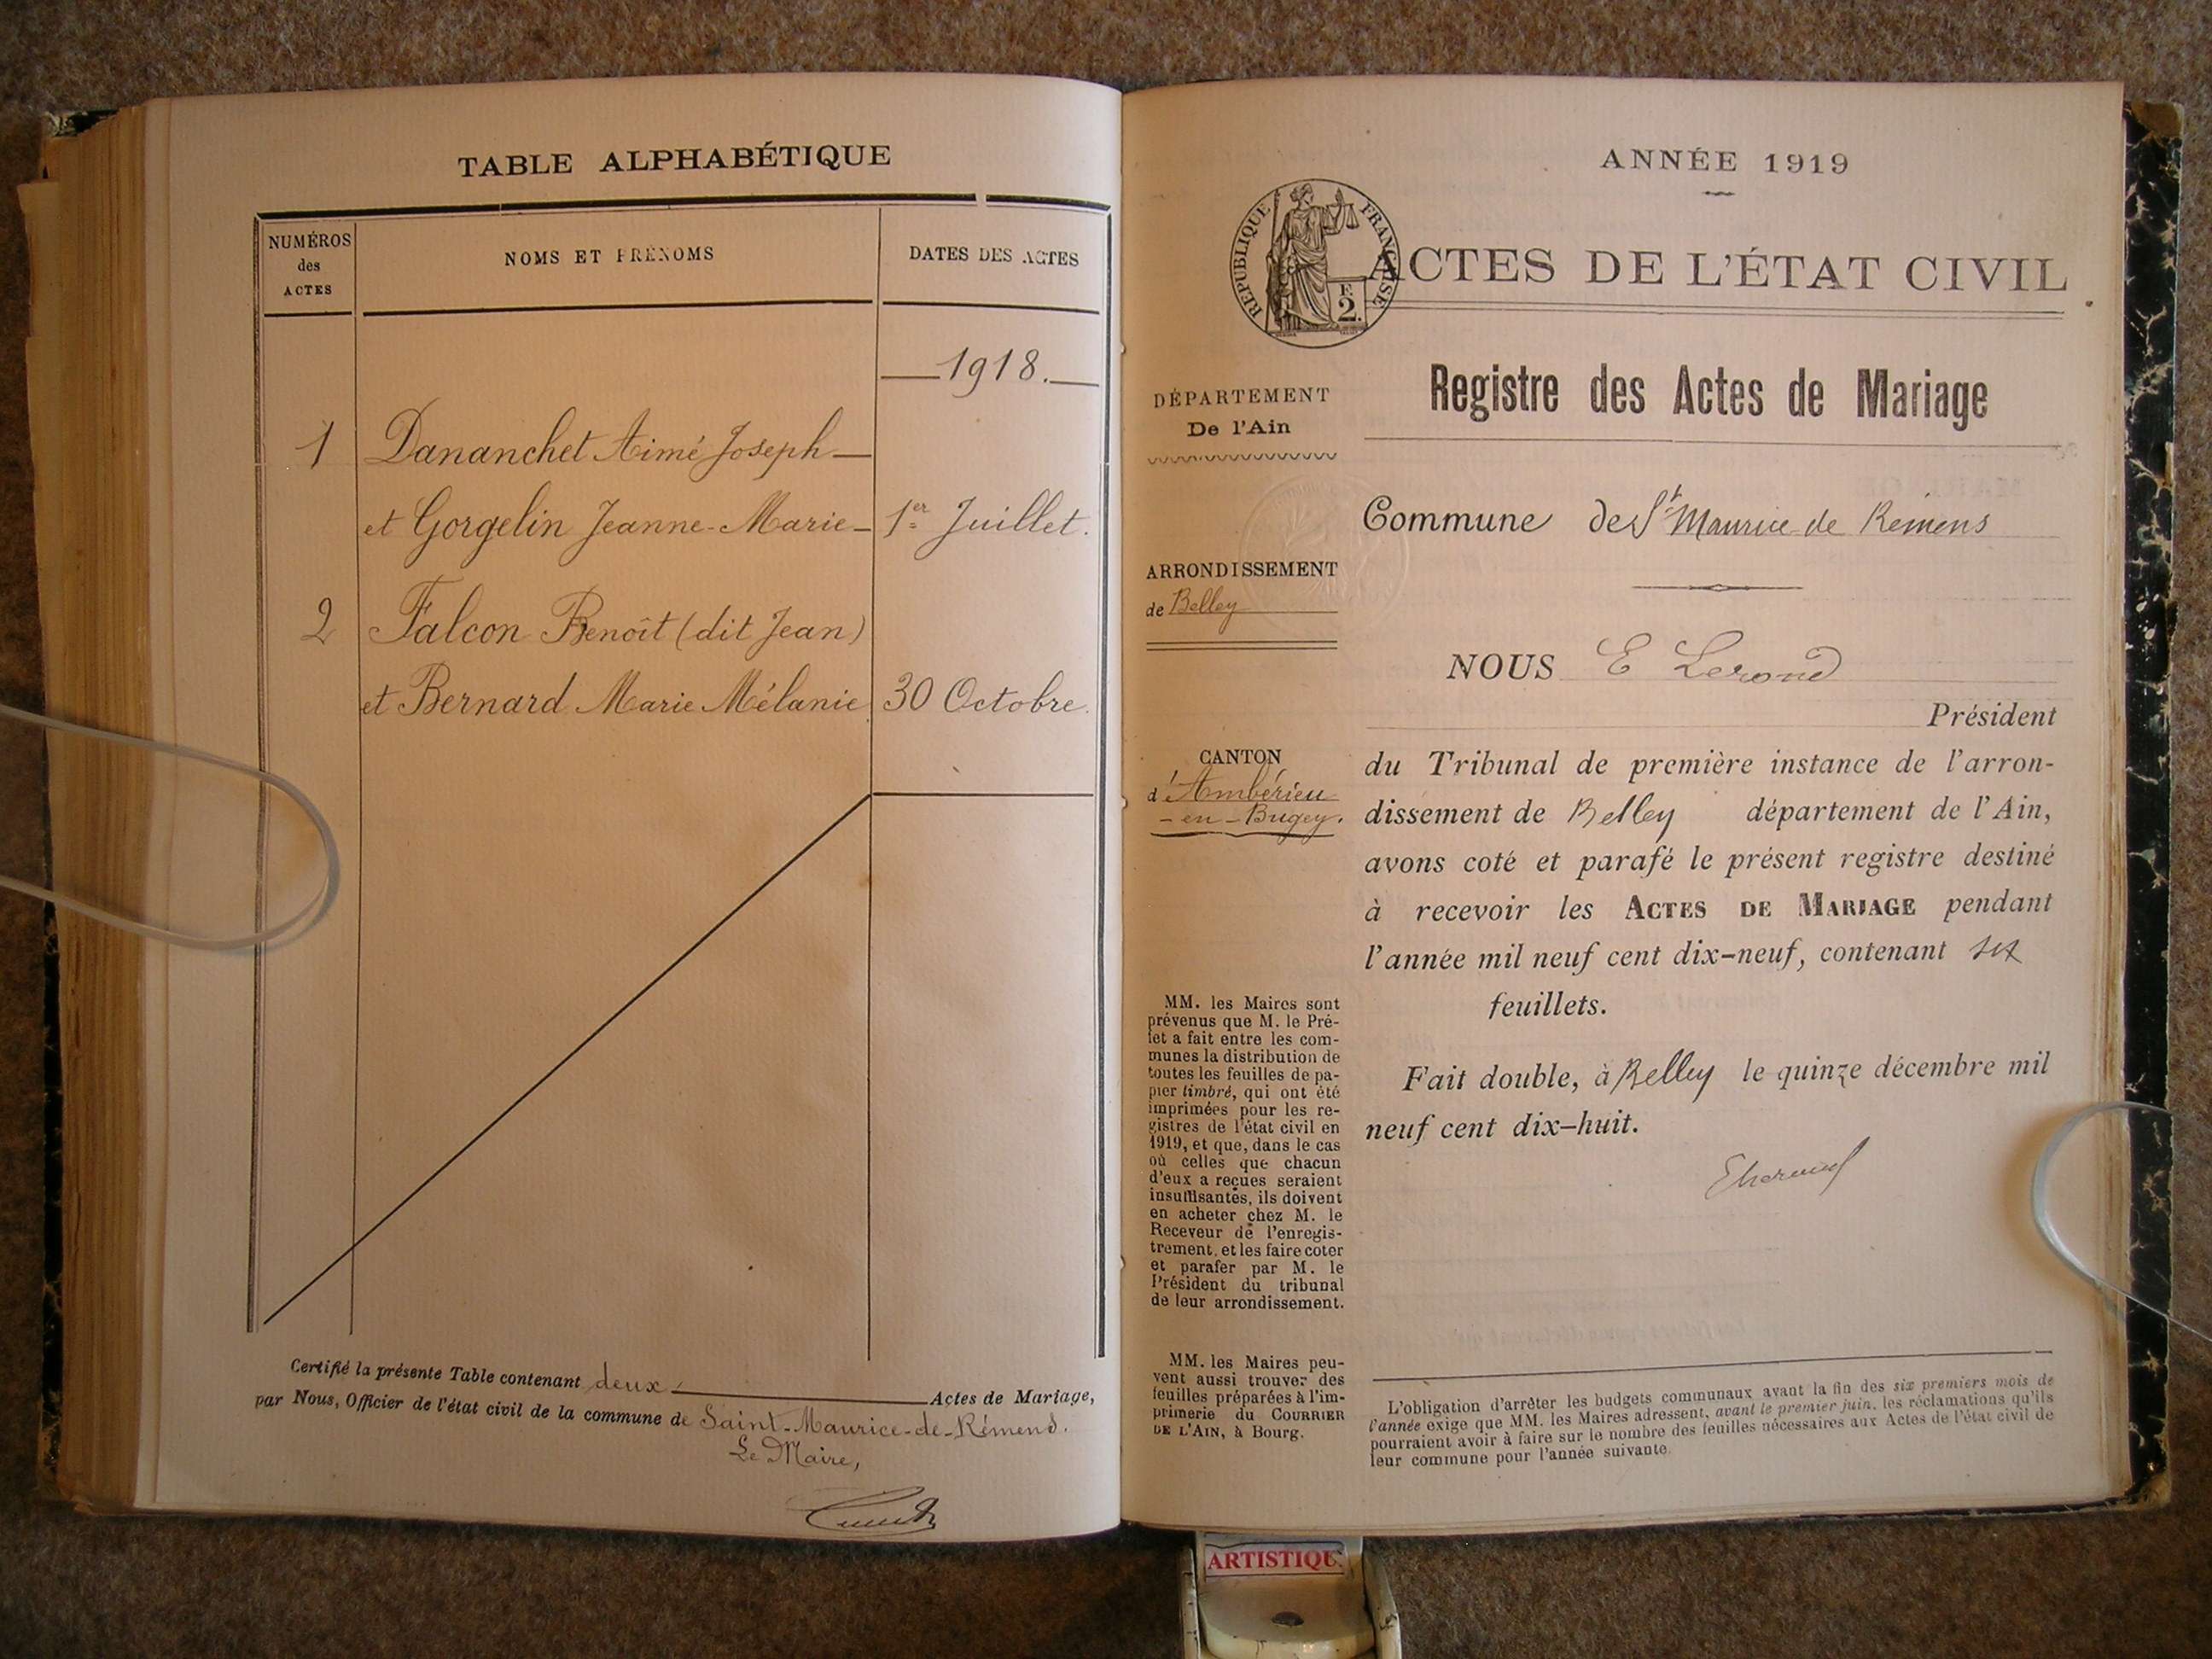 TABLE ALPHABÉTIQUE
NUMÉROS
des
ACTES
NOMS ET PRÉNOMS
DATES DES ACTES
1918.
1 Dananchet Aimé Joseph
et Gorgelin Jeanne-Marie 1er Juillet.
2 Falcon Benoît (dit Jean)
et Bernard Marie Mélanie 30 Octobre.
Certifié la présente Table contenant deux Actes de Mariage,
par Nous, Officier de l'état civil de la commune de Saint-Maurice-de-Rémens.
Le Maire,
ANNÉE 1919
RÉPUBLIQUE FRANÇAISE
F.
2.
ACTES DE L'ÉTAT CIVIL
Registre des Actes de Mariage
DÉPARTEMENT
De l'Ain
Commune de St Maurice de Rémens
ARRONDISSEMENT
de Belley
NOUS E Lerond
Président
CANTON
d'Ambérieu
-en-Bugey.
du Tribunal de première instance de l'arron-
dissement de Belley département de l'Ain,
avons coté et parafé le présent registre destiné
à recevoir les ACTES DE MARIAGE pendant
l'année mil neuf cent dix-neuf, contenant six
feuillets.
Fait double, à Belley le quinze décembre mil
neuf cent dix-huit.
MM. les Maires sont
prévenus que M. le Pré-
fet a fait entre les com-
munes la distribution de
toutes les feuilles de pa-
pier timbré, qui ont été
imprimées pour les re-
gistres de l'état civil en
1919, et que, dans le cas
où celles que chacun
d'eux a reçues seraient
insuffisantes, ils doivent
en acheter chez M. le
Receveur de l'enregis-
trement, et les faire coter
et parafer par M. le
Président du tribunal
de leur arrondissement.
MM. les Maires peu-
vent aussi trouver des
feuilles préparées à l'im-
primerie du COURRIER
DE L'AIN, à Bourg.
L'obligation d'arrêter les budgets communaux avant la fin des six premiers mois de
l'année exige que MM. les Maires adressent, avant le premier juin, les réclamations qu'ils
pourraient avoir à faire sur le nombre des feuilles nécessaires aux Actes de l'état civil de
leur commune pour l'année suivante.
ARTISTIQU